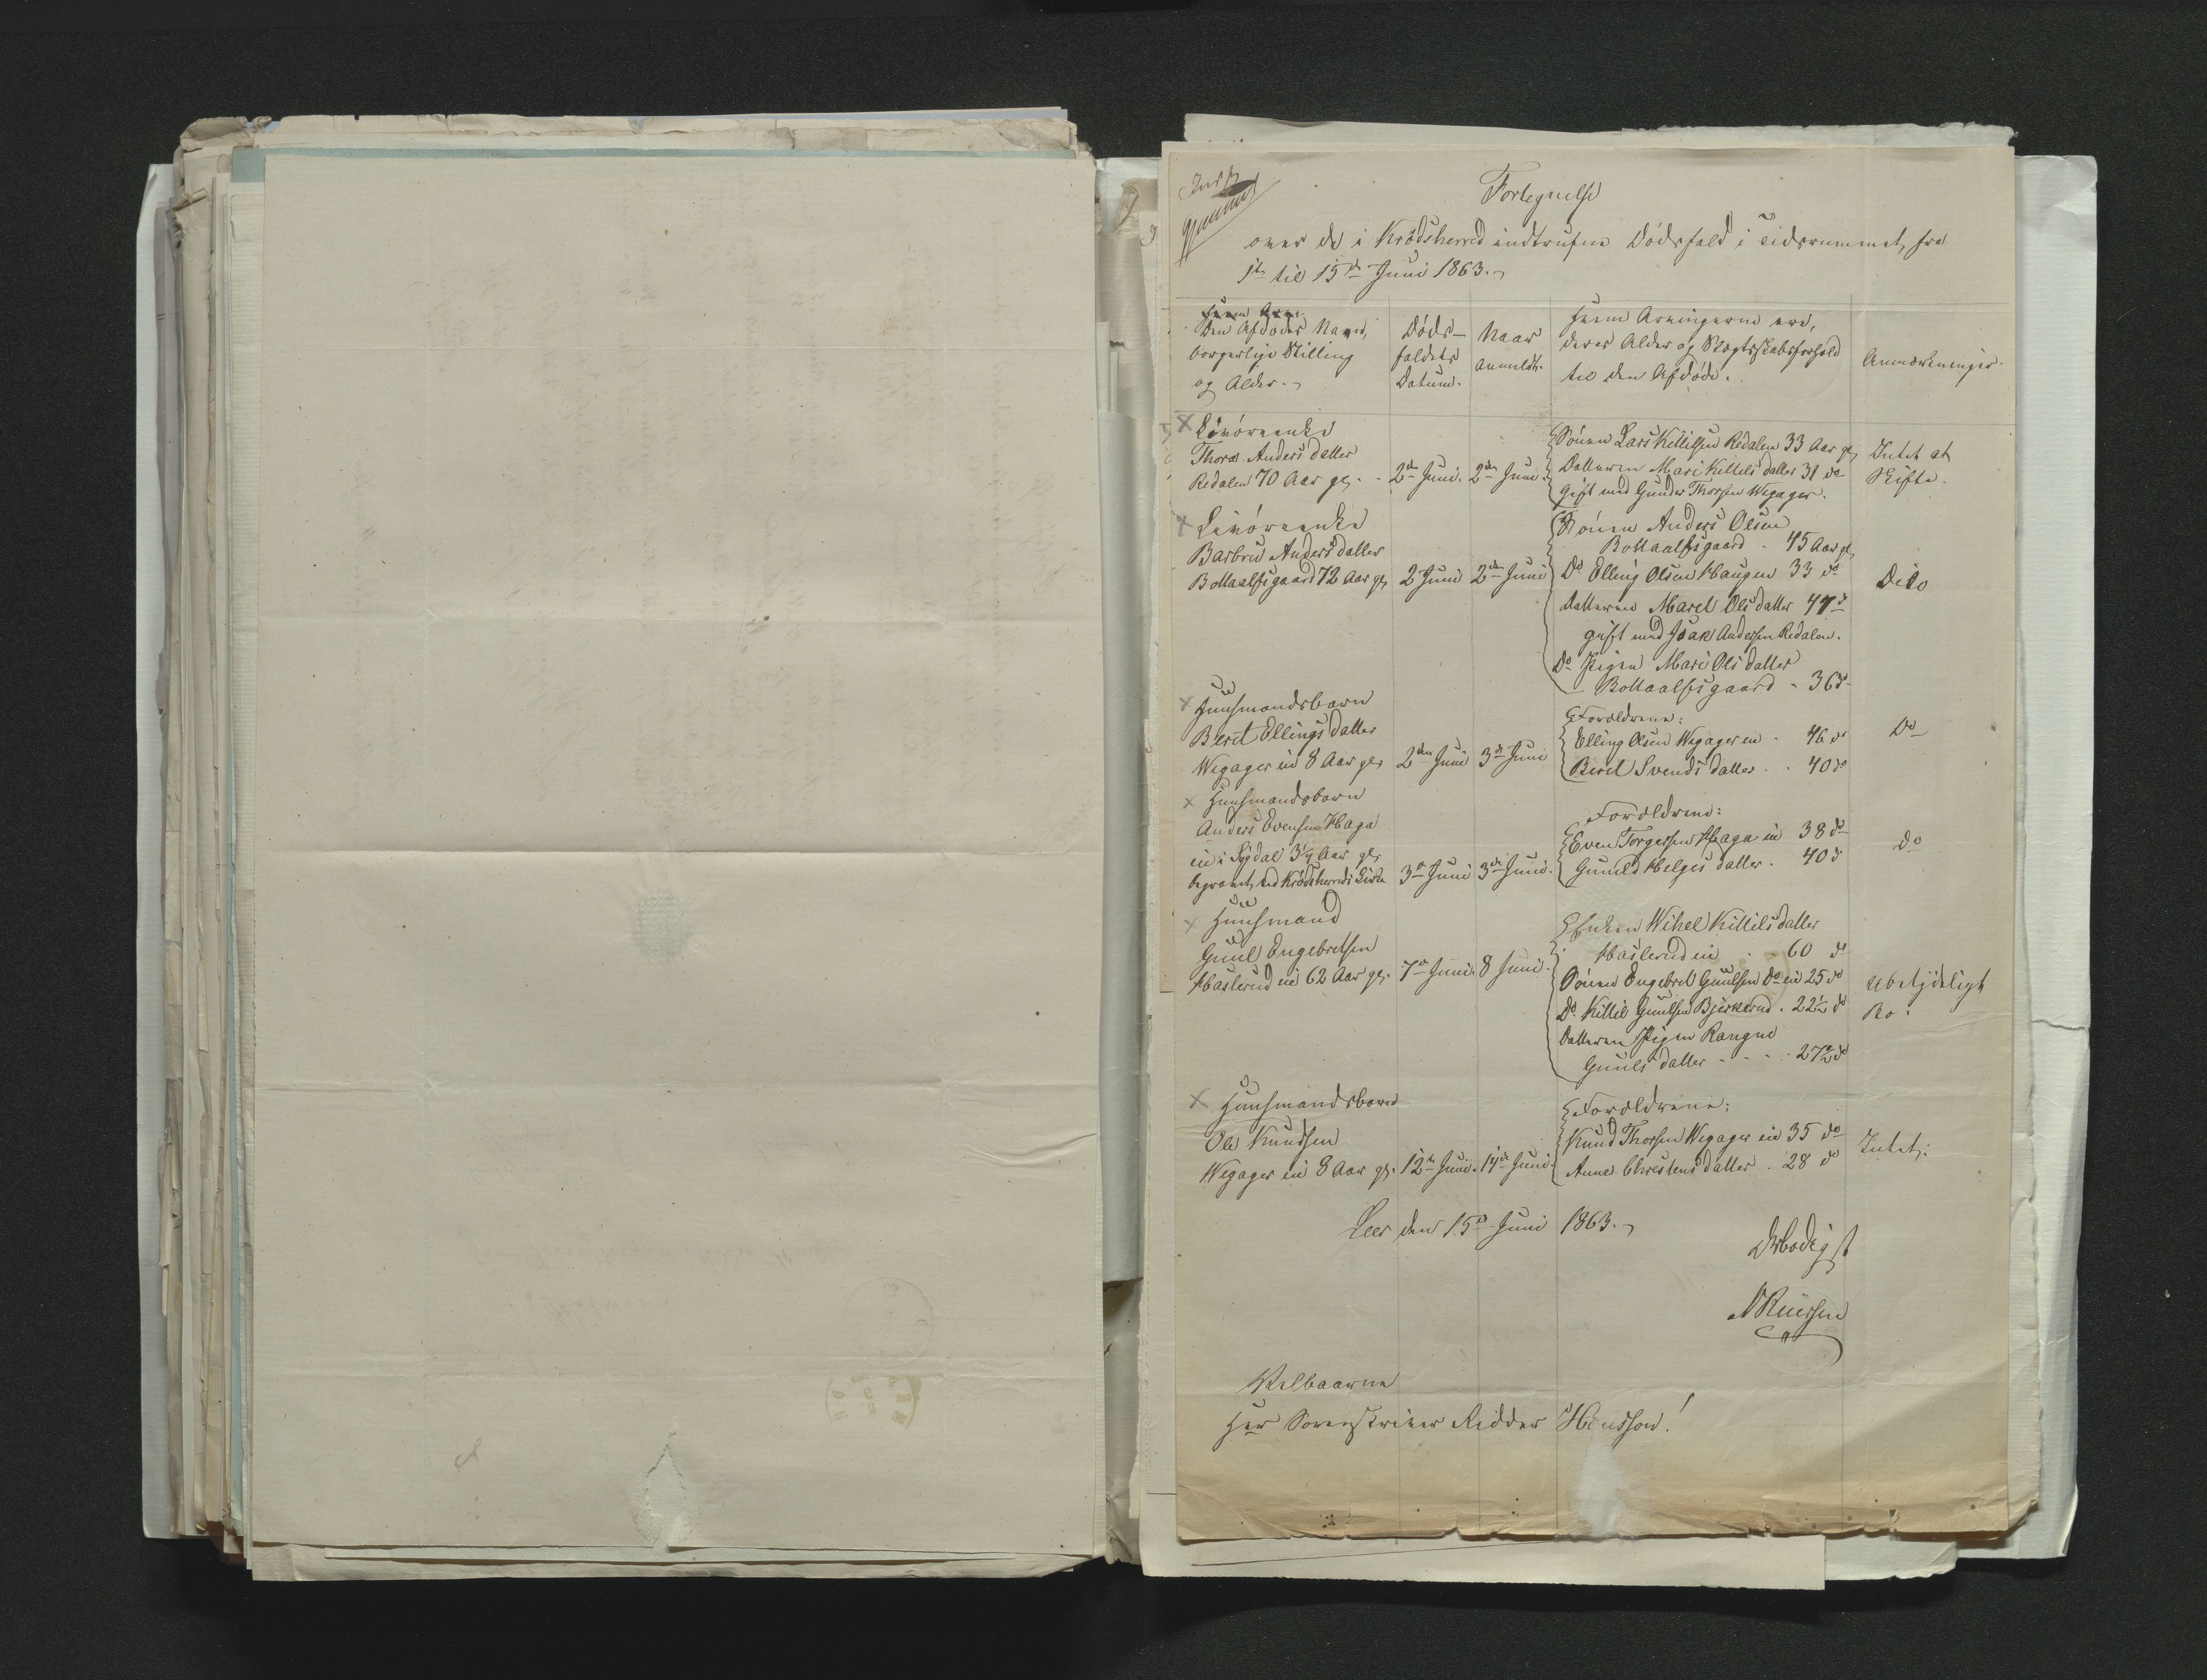 Fortegnelse
over de i Krødsherred indtrufne Dødsfald i Tidsrummet, fra
1te til 15de Juni 1863.
Den Afdødes Navn,
borgerlige Stilling
og Alder.
Døds-
faldets
Datum.
Naar
anmeldt.
Hvem Arvingerne ere,
deres Alder og Slægtskabsforhold
til den Afdøde.
Anmærkninger.
Livørenke
Thora Andersdatter
Redalen 70 Aar gl. 2den Juni. 2den Juni.
Sønen Lars Killilsen Redalen 33 Aar gl,
Datteren Mari Killilsdatter 31 do
gift med Gunder Thorsen Wegager.
Intet at
Skifte.
Livørenke
Barbru Andersdatter
Bottaalfsgaard 72 Aar gl, 2 Juni 2den Juni
Sønen Anders Olsen
Bottaalfsgaard - 45 Aar gl,
Do Elling Olsen Haugen 33 do
Datteren Maret Olsdatter 47 d
gift med Isak Andersen Redalen.
Do Pigen Mari Olsdatter
Bottaalfsgaard - 36 do
Dito
Huusmandsbarn
Berit Ellingsdatter
Wegager eie 8 Aar gl, 2den Juni 3de Juni
Forældrene:
Elling Olsen Wegager eie - 46 do
Berit Svendsdatter - 40 do
Do
Huusmandsbarn
Anders Evensen Haga
eie i Sigdal 3¼ Aar gl,
begravet ved Krødsherreds Kirke 3de Juni 3de Juni.
Forældrene:
Even Torgersen Haga eie 38 do
Gunild Helgesdatter. 40 d
do
Huusmand
Guul Engebretsen
Haslerud eie 62 Aar gl. 7de Juni. 8 Juni.
Enken Wihel Killilsdatter
Haslerud eie 60 d
Sønen Engebret Guulsen do eie 25 do
Do Killil Guulsen Bjerkerud. 22½ do
Datteren Pigen Rangne
Guulsdatter - - - 27½ do
Ubetydeligt
Bo.
Huusmandsbarn
Ole Knudsen
Wegager eie 8 Aar gl. 12te Juni. 14de Juni.
Forældrene:
Knud Thorsen Wegager eie 35 do
Anne Christensdatter. 28 do
Intet.
Leer den 15de Juni 1863.
Ærbødigst
Velbaarne
Herr Sorenskriver Ridder Hensson!